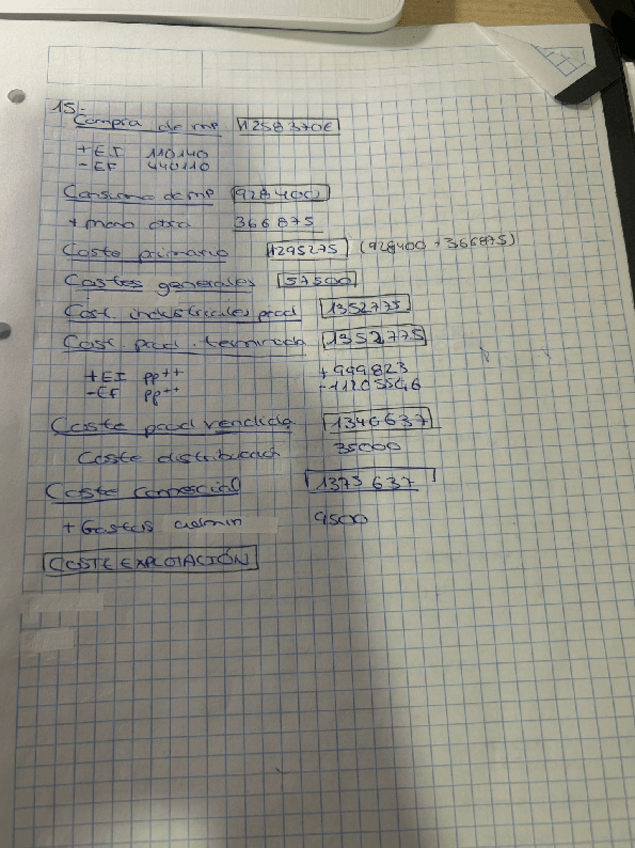 15.-
Compra de mp 1258370€
+EI 110140
-EF 440110
Consumo de mp 928400
+ mano obra 366875
Coste primario 1295275 (928400 + 366875)
Costes generales 57500
Cost. industriales prod 1352775
Cost. prod. terminada 1352775
+EI pp++ +999823
-EF pp++
Coste prod vendida 1340637
Coste distribucion 35000
Coste comercial 1375637
+ Gastos admin 9500
COSTE EXPLOTACIÓN